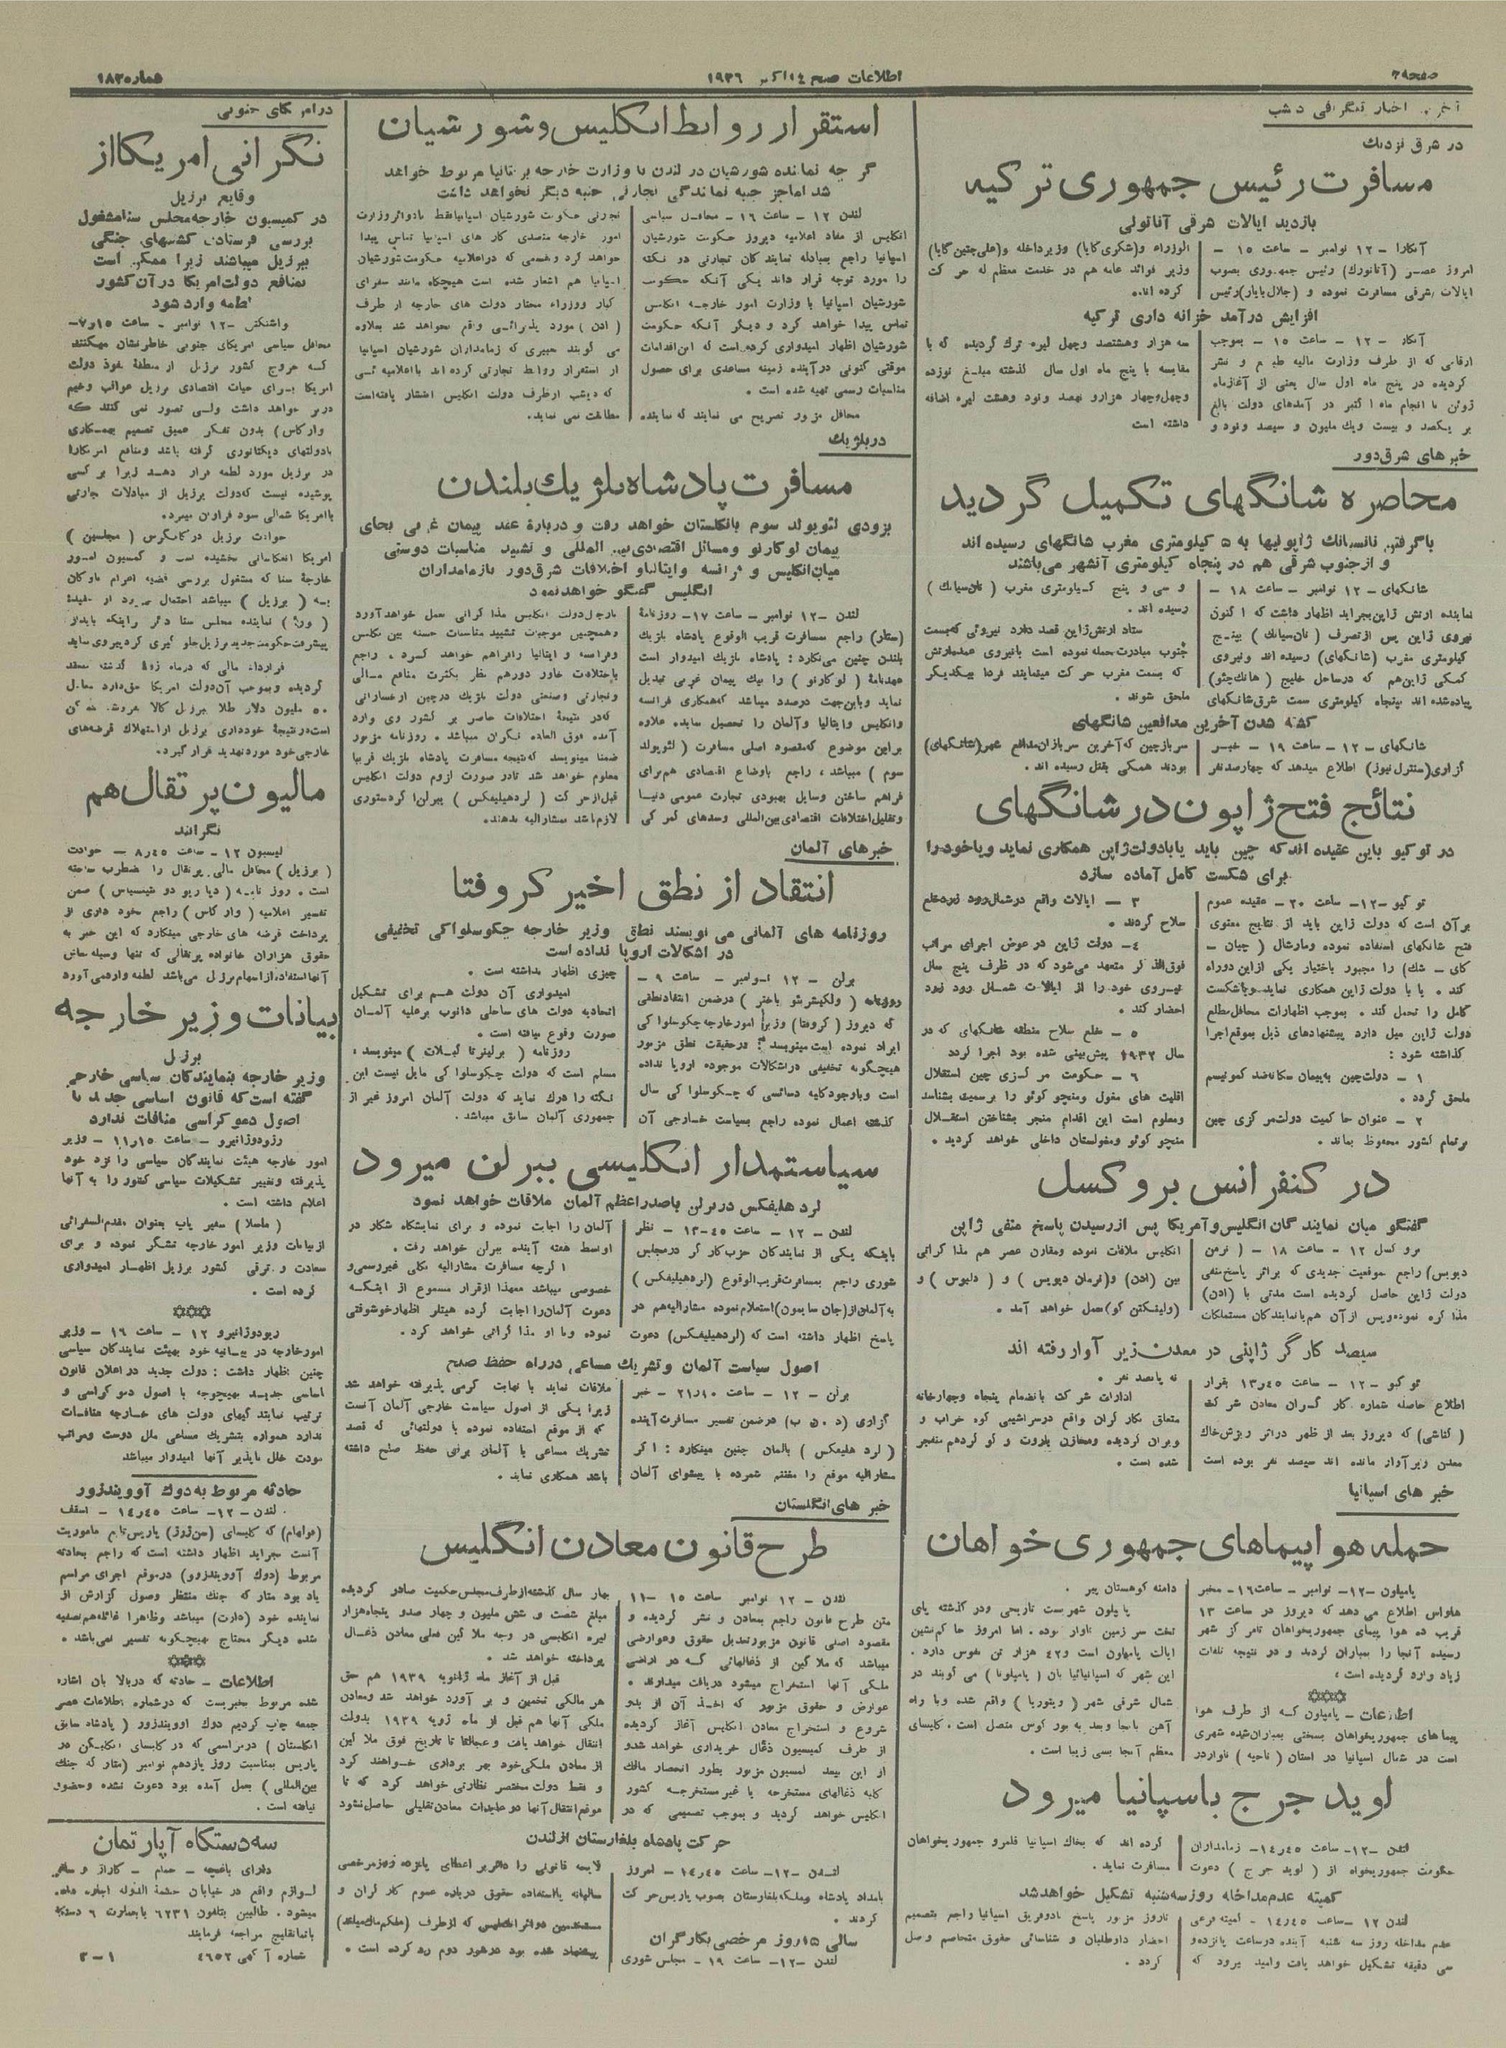 صفحه ۲
اطلاعات صبح ۱۴ اکتبر ۱۹۳۶
شماره ۱۸۳۰
آخرین اخبار تلگرافی دیشب
در شرق نزدیک
مسافرت رئیس جمهوری ترکیه
بازدید ایالات شرقی آناتولی
آنکارا - ۱۲ نوامبر - ساعت ۱۵ -
امروز عصر (آتاتورک) رئیس جمهوری بصوب
ایالات شرقی مسافرت نموده و (جلال بایار) رئیس
الوزراء و(شکری کایا) وزیر داخله و(علی چتین کایا)
وزیر فوائد عامه هم در خدمت معظم له حرکت
کرده اند.
افزایش درآمد خزانه داری ترکیه
آنکارا - ۱۲ - ساعت ۱۵ - بموجب
ارقامی که از طرف وزارت مالیه طبع و نشر
گردیده در پنج ماه اول سال یعنی از آغاز ماه
ژوئن تا انجام ماه اکتبر در آمدهای دولت بالغ
بر یکصد و بیست و یک ملیون و سیصد و نود و
سه هزار و هشتصد و چهل لیره ترک گردیده که با
مقایسه با پنج ماه اول سال گذشته مبلغ نوزده
وچهل وچهار هزار و نهصد ونود وهشت لیره اضافه
داشته است
خبرهای شرق دور
محاصره شانگهای تکمیل گردید
باگرفتن نانسیانک ژاپونیها به ۵ کیلومتری مغرب شانگهای رسیده اند
و از جنوب شرقی هم در پنجاه کیلومتری آنشهر می‌باشند
شانگهای - ۱۲ نوامبر - ساعت ۱۸ -
نماینده ارتش ژاپن بجراید اظهار داشت که اکنون
نیروی ژاپن پس از تصرف ( نان سیانک ) به پنج
کیلومتری مغرب (شانگهای) رسیده اند ونیروی
کمکی ژاپن هم که در ساحل خلیج (هانک چئو)
پیاده شده اند به پنجاه کیلومتری سمت شرق شانگهای
و سی و پنج کیلومتری مغرب (نان سیانک)
رسیده اند.
ستاد ارتش ژاپن قصد دارد نیروئی که بسمت
جنوب مبادرت بحمله نموده است بانیروی عمده ارتش
که بسمت مغرب حرکت مینمایند فردا بیکدیگر
ملحق شوند.
کشته شدن آخرین مدافعین شانگهای
شانگهای - ۱۲ - ساعت ۱۹ - خبر
گزاری (سنترل نیوز) اطلاع میدهد که چهارصد نفر
سرباز چین که آخرین سربازان مدافع شهر (شانگهای)
بودند همگی بقتل رسیده اند.
نتائج فتح ژاپون در شانگهای
در توکیو باین عقیده اند که چین باید یا با دولت ژاپن همکاری نماید ویا خود را
برای شکست کامل آماده سازد
توکیو - ۱۲ - ساعت ۲۰ - عقیده عموم
برآن است که دولت ژاپن باید از نتایج معنوی
فتح شانگهای استفاده نموده ومارشال ( چیان -
کای - شک) را مجبور باختیار یکی از این دو راه
کند. یا با دولت ژاپن همکاری نماید ویا شکست
کامل را تحمل کند. بموجب اظهارات محافل مطلع
دولت ژاپن میل دارد پیشنهادهای ذیل بموقع اجرا
گذاشته شود:
۱ - دولت چین به پیمان سکانه ضد کمونیسم
ملحق گردد.
۲ - عنوان حاکمیت دولت مرکزی چین
برتمام کشور محفوظ بماند.
۳ - ایالات واقع در شمال رود زرد خلع
سلاح گردند.
۴ - دولت ژاپن در عوض اجرای مراتب
فوق الذکر متعهد می‌شود که در ظرف پنج سال
نیروی خود را از ایالات شمال رود زرد
احضار کند.
۵ - خلع سلاح منطقه شانگهای که در
سال ۱۹۳۲ پیش بینی شده بود اجرا گردد
۶ - حکومت مرکزی چین استقلال
اقلیت های مغول ومنچو کوئو را برسمیت بشناسد
ومعلوم است این اقدام منجر بشناختن استقلال
منچو کوئو ومغولستان داخلی خواهد گردید.
در کنفرانس بروکسل
گفتگو میان نمایندگان انگلیس و آمریکا پس از رسیدن پاسخ منفی ژاپن
بروکسل ۱۲ - ساعت ۱۸ - (نرمن
دیویس) راجع بموقعیت جدیدی که براثر پاسخ منفی
دولت ژاپن حاصل گردیده است مدتی با (ادن)
مذاکره نموده وپس از آن هم با نمایندگان مستملکات
انگلیس ملاقات نموده ومقارن عصر هم مذاکراتی
بین (ادن) و(نرمان دیویس) و (دلبوس) و
(ولینگتن کو) بعمل خواهد آمد.
سیصد کارگر ژاپنی در معدن زیر آوار رفته اند
توکیو - ۱۲ - ساعت ۱۳ر۴۵ بقرار
اطلاع حاصله شماره کارگران معادن شرکت
که دیروز بعد از ظهر دراثر ریزش خاک
معدن زیر آوار مانده اند سیصد نفر بوده است
نه پانصد نفر.
ادارات شرکت بانضمام پنجاه وچهار خانه
متعلق بکارگران واقع در سراشیبی کوه خراب و
ویران گردیده ومخازن باروت و لوکردهم منفجر
شده است.
خبرهای اسپانیا
حمله هواپیماهای جمهوری خواهان
پامپلون - ۱۲ - نوامبر - ساعت ۱۶ - مخبر
هاواس اطلاع می دهد که دیروز در ساعت ۱۳
قریب ده هوا پیمای جمهوریخواهان تامرکز شهر
رسیده آنجا را بمباران کردند و در نتیجه تلفات
زیاد وارد گردیده است.
اطلاعات - پامپلون که از طرف هوا
پیماهای جمهوریخواهان بسختی بمباران شده شهری
است در شمال اسپانیا در استان (ناحیه) ناوار در
دامنه کوهستان پیر.
پامپلون شهریست تاریخی ودر گذشته پای
تخت سر زمین ناوار بوده. اما امروز حاکم نشین
ایالت پامپلون است و۴۲ هزار تن نفوس دارد.
این شهر که اسپانیائیا بان (پامپلونا) می گویند در
شمال شرقی شهر (ویتوریا) واقع شده وبا راه
آهن بآنجا وبعد به بور کوس متصل است. کلیسای
معظم آنجا بسی زیبا است.
لوید جرج باسپانیا میرود
لندن - ۱۲ - ساعت ۱۴ر۴۵ - زمامداران
حکومت جمهوریخواه از (لوید جرج) دعوت
کرده اند که بخاک اسپانیا قلمرو جمهوریخواهان
مسافرت نماید.
کمیته عدم مداخله روز سه شنبه تشکیل خواهد شد
لندن ۱۲ - ساعت ۱۴ر۴۵ - کمیته فرعی
عدم مداخله روز سه شنبه آینده در ساعت پانزده و
سی دقیقه تشکیل خواهد یافت وامید میرود که
تاروز مزبور پاسخ دو فریق اسپانیا راجع بتصمیم
احضار داوطلبان و شناسائی حقوق متخاصم وصل
گردد.
استقرار روابط انگلیس و شورشیان
گرچه نماینده شورشیان در لندن با وزارت خارجه بریتانیا مربوط خواهد
شد اماجز جنبه نمایندگی تجارتی جنبه دیگر نخواهد داشت
لندن ۱۲ - ساعت ۱۶ - محافل سیاسی
انگلیس از مفاد اعلامیه دیروز حکومت شورشیان
اسپانیا راجع بمبادله نمایندگان تجارتی دو نکته
را مورد توجه قرار داند یکی آنکه حکومت
شورشیان اسپانیا با وزارت امور خارجه انگلیس
تماس پیدا خواهد کرد و دیگر آنکه حکومت
شورشیان اظهار امیدواری کرده است که این اقدامات
موقتی کنونی در آینده زمینه مساعدی برای حصول
مناسبات رسمی تهیه شده است.
محافل مزبور تصریح می نمایند که نماینده
تجارتی حکومت شورشیان اسپانیا فقط بادوائر وزارت
امور خارجه متصدی کار های اسپانیا تماس پیدا
خواهد کرد وقسمی که دراعلامیه حکومت شورشیان
اسپانیا هم اشعار شده است هیچگاه مانند سفرای
کبار ووزراء مختار دولت های خارجه از طرف
(ادن) مورد پذیرائی واقع نخواهد شد بعلاوه
می گویند خبری که زمامداران شورشیان اسپانیا
از استقرار روابط تجارتی کرده اند بااعلامیه ئی
که دیشب از طرف دولت انگلیس انتشار یافته است
مطابقت نمی نماید.
در بلژیک
مسافرت پادشاه بلژیک بلندن
بزودی لئوپولد سوم بانگلستان خواهد رفت و درباره عقد پیمان غربی بجای
پیمان لوکارنو ومسائل اقتصادی بین المللی و تشیید مناسبات دوستی
میان انگلیس و فرانسه وایتالیا و اختلافات شرق دور با زمامداران
انگلیس گفتگو خواهد نمود
لندن - ۱۲ نوامبر - ساعت ۱۷ - روزنامه
(ستار) راجع بمسافرت قریب الوقوع پادشاه بلژیک
بلندن چنین می‌نگارد: پادشاه بلژیک امیدوار است
عهدنامه (لوکارنو) را بیک پیمان غربی تبدیل
نماید وباین جهت درصدد میباشد که همکاری فرانسه
وانگلیس وایتالیا وآلمان را تحصیل نماید. علاوه
براین موضوع که مقصود اصلی مسافرت (لئوپولد
سوم) میباشد، راجع باوضاع اقتصادی هم برای
فراهم ساختن وسایل بهبودی تجارت عمومی دنیا
وتقلیل اختلافات اقتصادی بین المللی وسدهای گمرکی
بارجال دولت انگلیس مذاکراتی بعمل خواهد آورد
وهمچنین موجبات تشیید مناسبات حسنه بین انگلیس
وفرانسه و ایتالیا را فراهم خواهد کرد. راجع
باختلافات خاور دورهم نظر بکثرت منافع مالی
وتجارتی وصنعتی دولت بلژیک درچین از خساراتی
که در نتیجه اختلافات حاضر بر کشور وی وارد
آمده فوق العاده نگران میباشد. روزنامه مزبور
ضمنا مینویسد که نتیجه مسافرت پادشاه بلژیک قریبا
معلوم خواهد شد تادر صورت لزوم دولت انگلیس
قبل از حرکت (لردهیلیفکس) ببرلن اگر دستوری
لازم باشد بمشارالیه بدهند.
خبرهای آلمان
انتقاد از نطق اخیر کروفتا
روزنامه های آلمانی می نویسند نطق وزیر خارجه چکوسلواکی تخفیفی
در اشکالات اروپا نداده است
برلن - ۱۲ نوامبر - ساعت ۹ -
روزنامه (ولکیشر بئو باختر) درضمن انتقاد نطقی
که دیروز (کروفتا) وزیر امور خارجه چکوسلواکی
ایراد نموده است مینویسد: درحقیقت نطق مزبور
هیچگونه تخفیفی دراشکالات موجوده اروپا نداده
است وباوجود کلیه دسائسی که چکوسلواکی سال
گذشته اعمال نموده راجع بسیاست خارجی آن
چیزی اظهار نداشته است.
امیدواری آن دولت هم برای تشکیل
اتحادیه دولت های ساحلی دانوب برعلیه آلمان
صورت وقوع نیافته است.
روزنامه (برلینر تاگبلات) مینویسد،
مسلم است که دولت چکوسلواکی مایل نیست این
نکته را درک نماید که دولت آلمان امروز غیر از
جمهوری آلمان سابق میباشد.
سیاستمدار انگلیسی ببرلن میرود
لرد هلیفکس در برلن باصدر اعظم آلمان ملاقات خواهد نمود
لندن - ۱۲ - ساعت ۱۳-۴۵ - نظر
باینکه یکی از نمایندگان حزب کارگر در مجلس
شوری راجع بمسافرت قریب الوقوع (لردهلیفکس)
به آلمان از (جان سایمون) استعلام نموده مشارالیه هم در
پاسخ اظهار داشته است که (لردهیلیفکس) دعوت
آلمان را اجابت نموده و برای نمایشگاه شکار در
اوسط هفته آینده ببرلن خواهد رفت.
اگرچه مسافرت مشارالیه بکلی غیر رسمی و
خصوصی میباشد معهذا از قرار مسموع از اینکه
دعوت آلمان را اجابت کرده هیتلر اظهار خوشوقتی
نموده وبا او مذاکراتی خواهد کرد.
اصول سیاست آلمان وتشریک مساعی در راه حفظ صلح
برلن - ۱۲ - ساعت ۲۱ر۱۰ - خبر
گزاری (د. ن. ب) درضمن تفسیر مسافرت آینده
(لرد هلیفکس) بآلمان چنین مینگارد: اگر
مشارالیه موقع را مغتنم شمرده با پیشوای آلمان
ملاقات نماید با نهایت گرمی پذیرفته خواهد شد
زیرا یکی از اصول سیاست خارجی آلمان آنست
که از موقع استفاده نموده با دولتهائی که قصد
تشریک مساعی با آلمان برای حفظ صلح داشته
باشد همکاری نماید.
خبرهای انگلستان
طرح قانون معادن انگلیس
لندن - ۱۲ نوامبر ساعت ۱۵-۱۱
متن طرح قانون راجع بمعادن و نشر گردیده و
مقصود اصلی قانون مزبور تعدیل حقوق وعوارضی
میباشد که ملاکین از ذغالهائی که در اراضی
ملکی آنها استخراج میشود دریافت میدارند.
عوارض و حقوق مزبور که اخذ آن از بدو
شروع و استخراج معادن انگلیس آغاز گردیده
از طرف کمیسیون ذغال خریداری خواهد شد و
از این بعد کمیسیون مزبور بطور انحصار مالک
کلیه ذغالهای مستخرجه یا غیر مستخرجه کشور
انگلیس خواهد گردید و بموجب تصمیمی که در
بهار سال گذشته از طرف مجلس حکمیت صادر گردیده
مبلغ شصت و شش ملیون و چهار صد و پنجاه هزار
لیره انگلیسی در وجه ملاکین فعلی معادن ذغال
پرداخته خواهد شد.
قبل از آغاز ماه ژانویه ۱۹۳۹ هم حق
هر مالکی تخمین و بر آورد خواهد شد ومعادن
ملکی آنها هم قبل از ماه ژویه ۱۹۳۹ بدولت
انتقال خواهد یافت وعجالتا تا تاریخ فوق ملاکین
از معادن ملکی خود بهره برداری خواهند کرد
و فقط دولت مختصر نظارتی خواهد کرد که تا
موقع انتقال آنها در عایدات معادن تقلیلی حاصل نشود
حرکت پادشاه بلغارستان از لندن
لندن - ۱۲ - ساعت ۱۴ر۴۵ - امروز
بامداد پادشاه وملکه بلغارستان بصوب پاریس حرکت
کردند.
سالی ۱۵ روز مرخصی بکارگران
لندن - ۱۲ - ساعت ۱۹ - مجلس شوری
لایحه قانونی را دائر بر اعطای پانزده روز مرخصی
سالیانه بااستفاده حقوق درباره عموم کارگران و
مستخدمین دوائر انگلیس که از طرف
پیشنهاد شده بود درشور دوم رد کرده است.
در امریکای جنوبی
نگرانی امریکا از
وقایع برزیل
در کمیسیون خارجه مجلس سنا مشغول
بررسی فرستادن کشتیهای جنگی
ببرزیل میباشند زیرا ممکن است
بمنافع دولت امریکا در آن کشور
لطمه وارد شود
واشنگتن - ۱۲ نوامبر - ساعت ۷ر۱۵ -
محافل سیاسی امریکای جنوبی خاطر نشان میکنند
که خروج کشور برزیل از منطقه نفوذ دولت
امریکا برای حیات اقتصادی برزیل عواقب وخیم
دربر خواهد داشت ولی تصور نمی کنند که
وارگاس) بدون تفکر عمیق تصمیم بهمکاری
بادولتهای دیکتاتوری گرفته باشد ومنافع امریکا را
در برزیل مورد لطمه قرار دهد زیرا بر کسی
پوشیده نیست که دولت برزیل از مبادلات تجارتی
باامریکا شمالی سود فراوان میبرد.
حوادث برزیل درکانگرس (مجلسین)
امریکا انعکاسی بخشیده است و کمیسیون امور
خارجه سنا که مشغول بررسی قضیه اعزام ناوگان
به (برزیل) میباشد احتمال میرود از عقیده
نماینده مجلس سنا دائر براینکه باید از
پیشرفت حکومت جدید برزیل جلوگیری کرد پیروی نماید
قرارداد مالی که درماه ژوئیه گذشته منعقد
گردیده وبموجب آن دولت امریکا حق دارد معادل
۵۰ ملیون دلار طلا ببرزیل کالا بفروشد ممکن
است در نتیجه خودداری برزیل از استهلاک قرضه‌های
خارجی خود مورد تهدید قرار گیرد.
مالیون پرتقال هم
نگرانند
لیسبون ۱۲ - ساعت ۸ر۴۵ - حوادث
(برزیل) محافل مالی پرتقال را مضطرب ساخته
است. روزنامه (دیاریو دو نتیسیاس) ضمن
تفسیر اعلامیه (وارگاس) راجع بخود داری از
پرداخت قرضه های خارجی مینگارد که این خبر به
حقوق هزاران خانواده پرتقالی که تنها وسیله معاش
آنها استفاده از اسهام برزیل می‌باشد لطمه وارد می آورد
بیانات وزیر خارجه
برزیل
وزیر خارجه بنمایندگان سیاسی خارجه
گفته است که قانون اساسی جدید با
اصول دموکراسی منافات ندارد
ریودوژانیرو - ساعت ۱۱ر۱۵ - وزیر
امور خارجه هیئت نمایندگان سیاسی را نزد خود
پذیرفته وتغییر تشکیلات سیاسی کشور را به آنها
اعلام داشته است.
(ماسلا) سفیر پاپ بعنوان مقدم السفرائی
از بیانات وزیر امور خارجه تشکر نموده و برای
سعادت و ترقی کشور برزیل اظهار امیدواری
کرده است.
ریودوژانیرو ۱۲ - ساعت ۱۶ - وزیر
امور خارجه در بیانیه خود بهیئت نمایندگان سیاسی
چنین اظهار داشت: دولت جدید در اعلان قانون
اساسی جدید بهیچوجه با اصول دموکراسی و
ترتیب نمایندگیهای دولت های خارجه منافات
ندارد همواره بتشریک مساعی ملل دوست ومراتب
مودت خلل ناپذیر آنها امیدوار میباشد
حادثه مربوط به دوک آو ویندزور
لندن - ۱۲ - ساعت ۱۴ر۴۵ - اسقف
(فولهام) که کلیسای (سن ژرژ) پاریس تابع ماموریت
آنست بجراید اظهار داشته است که راجع بحادثه
مربوط (دوک آو ویندزور) درموقع اجرای مراسم
یاد بود متارکه جنک منتظر وصول گزارش از
نماینده خود (دارت) میباشد وظاهرا غائله هم تصفیه
شده دیگر محتاج بهیچگونه تفسیر نمی‌باشد.
اطلاعات - حادثه که دربالا بان اشاره
شده مربوط بخبریست که درشماره اطلاعات عصر
جمعه چاپ کردیم دوک اوویندزور (پادشاه سابق
انگلستان) در مراسمی که در کلیسای انگلیکن در
پاریس بمناسبت روز یازدهم نوامبر (متارکه جنک
بین المللی) بعمل آمده بود دعوت نشده وحضور
نیافته است.
سه دستگاه آپارتمان
دارای باغچه - حمام - گاراژ و سایر
لوازم واقع در خیابان حشمة الدوله اجاره داده
میشود. طالبین بتلفون ۶۲۳۱ یا عمارت ۶ دستگاه
مراجعه فرمایند
شماره آگهی ۴۶۵۲
۱-۳